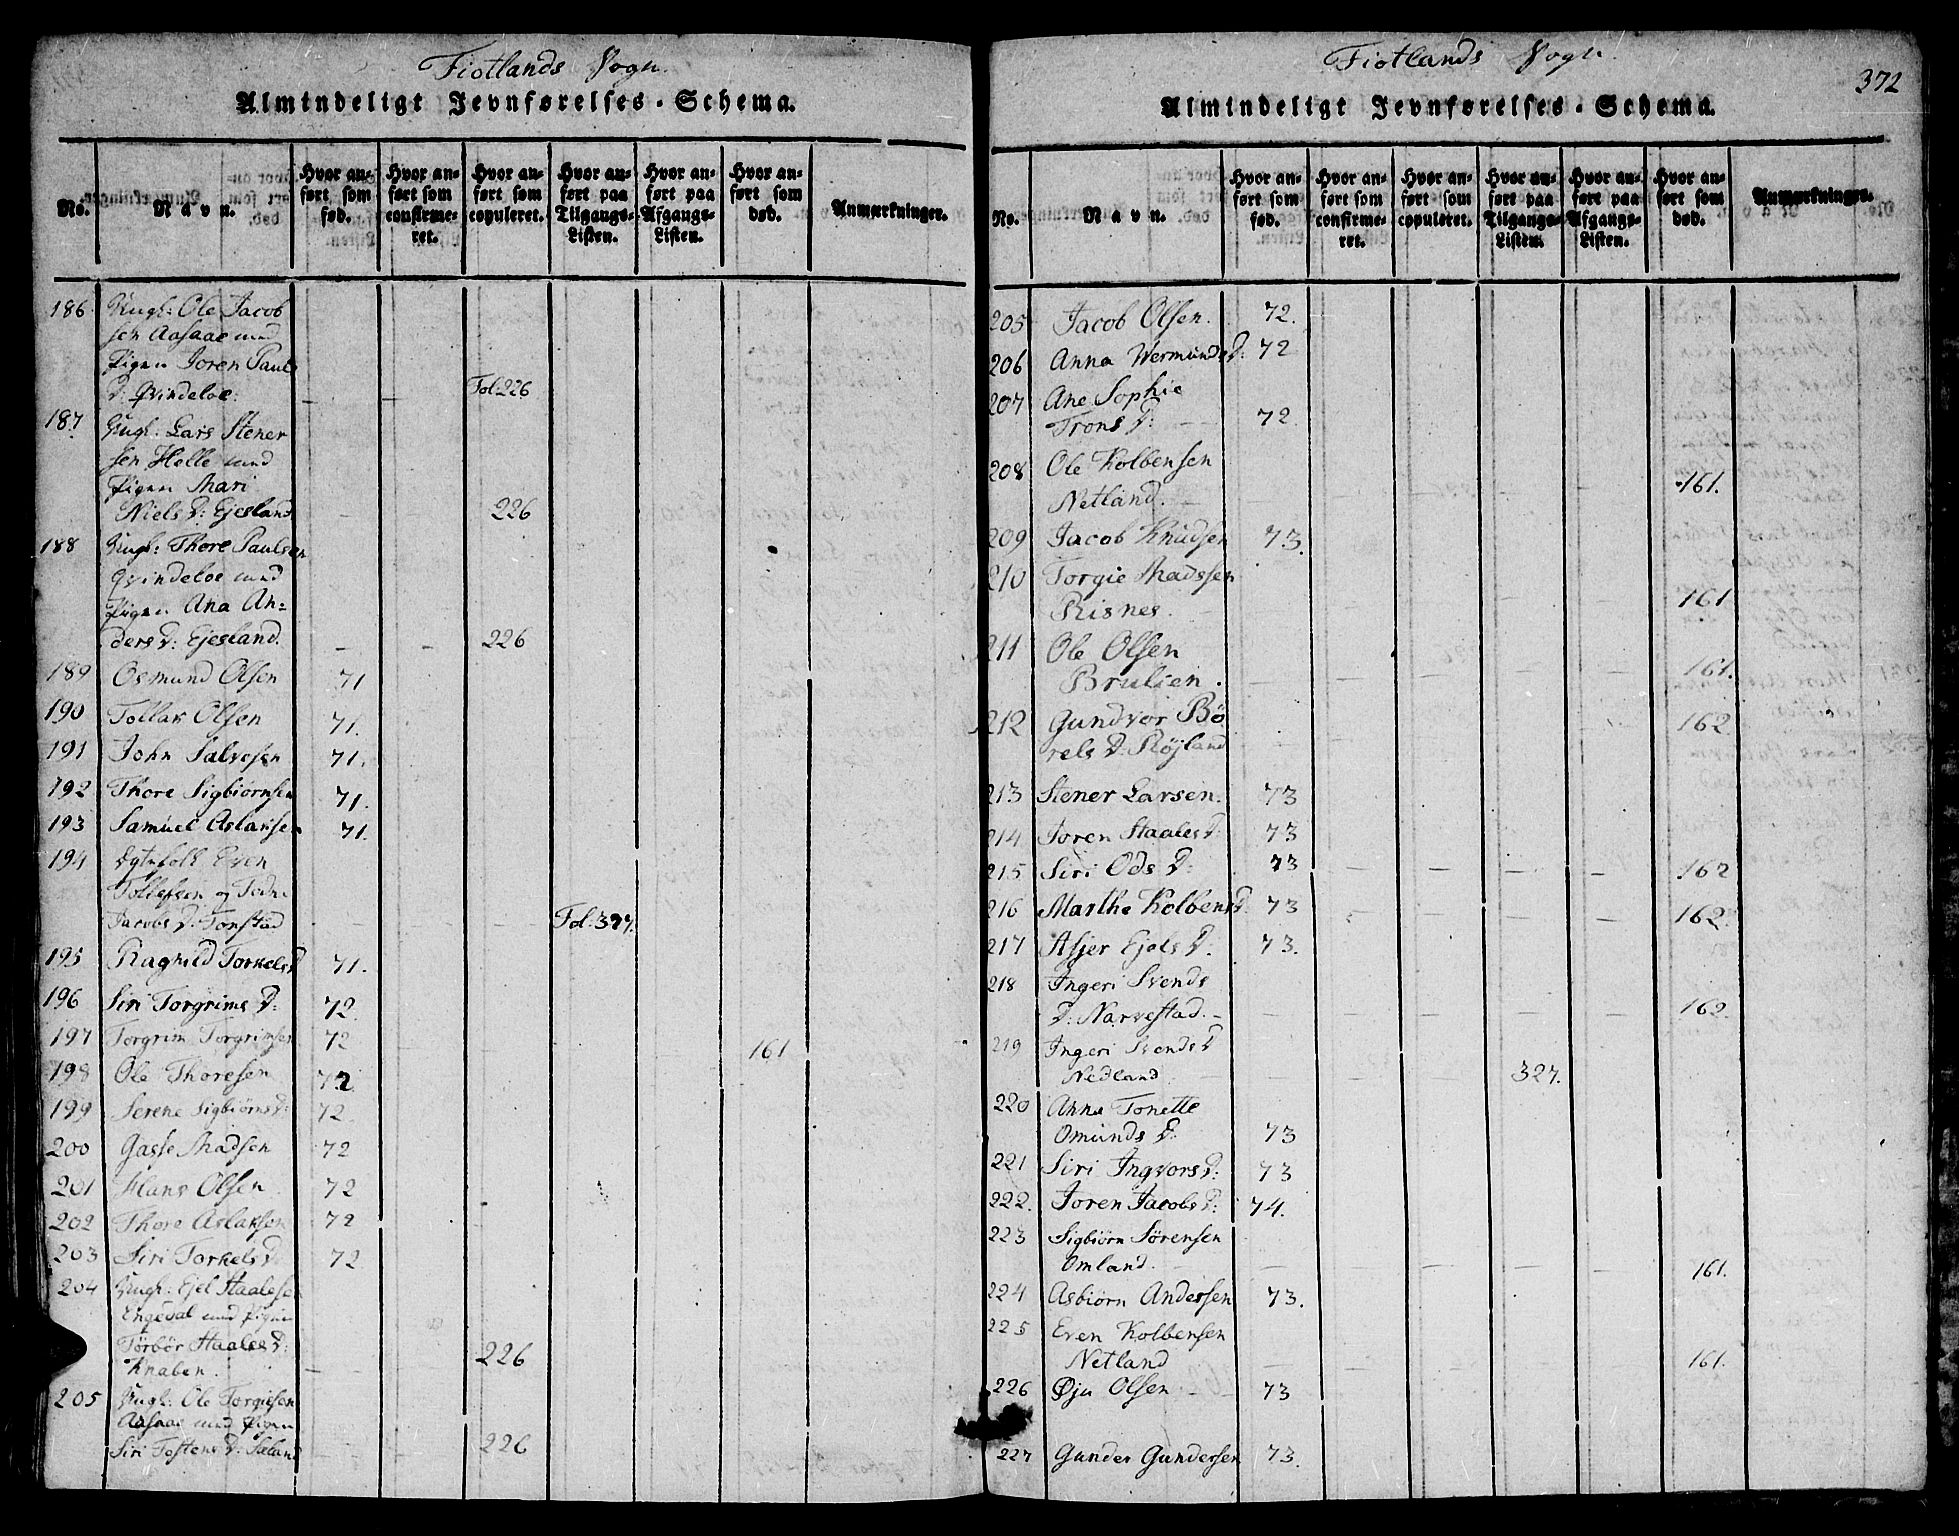 Fiotlands Sogn.
Almindeligt Jevnførelses-Schema.
No.
Navn.
Hvor anført som fød.
Hvor anført som confirmeret.
Hvor anført som copuleret.
Hvor anført paa Tilgangs-Listen.
Hvor anført paa Afgangs-Listen.
Hvor anført som død.
Anmærkninger.
186 Ungk: Ole Jacob
sen Aasaae med
Pigen Joren Pauls
D: Qvindeloe. Fol: 226
187. Ungk: Lars Stener
sen Helle med
Pigen Mari
Niels D: Ejesland 226
188 Ungk: Thore Paulsen
Qvindeloe med
Pigen Ana An-
ders D: Ejesland. 226
189 Osmund Olsen 71
190 Tollak Olsen 71.
191 John Salvesen 71.
192 Thore Sigbiørnsen 71.
193 Samuel Aslaksen 71.
194 Egtefolk Even
Tollefsen og
Jacobs D: Tonstad Fol: 327.
195 Ragnild Torkels D 71.
196 Siri Torgrims D: 72.
197 Torgrim Torgrimsen 72 161
198 Ole Thoresen 72
199 Serene Sigbiørns D: 72
200 Gasse Madsen 72
201 Hans Olsen 72
202 Thore Aslaksen 72
203 Siri Torkels D. 72
204 Ungk: Ejel Staalesen
Engedal med Pigen
Tørbør Staales D:
Knaben. 226
205 Ungk: Ole Torgiesen
Aasaae med Pigen
Siri Tostens D: 226
Fiotlands Sogn.
372
Almindeligt Jevnførelses-Schema.
No.
Navn.
Hvor anført som fød.
Hvor anført som confirmeret.
Hvor anført som copuleret.
Hvor anført paa Tilgangs-Listen.
Hvor anført paa Afgangs-Listen.
Hvor anført som død.
Anmærkninger.
205 Jacob Olsen. 72.
206 Anna Wermunds D: 72
207 Ane Sophie
Trons D: 72.
208 Ole Kolbensen
Netland. 161.
209 Jacob Knudsen 73.
210 Torgie Madssen
Risnes. 161
211 Ole Olsen
Brulien. 161.
212 Gundvor Bø
rels D: Røjland 162
213 Stener Larsen. 73
214 Joren Staales D: 73
215 Siri Ods D: 73 162
216 Marthe Kolbens D. 73 162.
217 Asjer Ejels D: 73.
218 Ingeri Svends
D: Narvestad. 162.
219 Ingeri Svends D
Nedland 327.
220 Anna Tonette
Omunds D. 73
221 Siri Ingvors D: 73
222. Joren Jacobs D: 74.
223 Sigbiørn Sørensen
Omland. 161.
224 Asbiørn Andersen 73.
225 Even Kolbensen
Netland 161.
226 Øju Olsen 73
227 Gunder Gundersen 73.